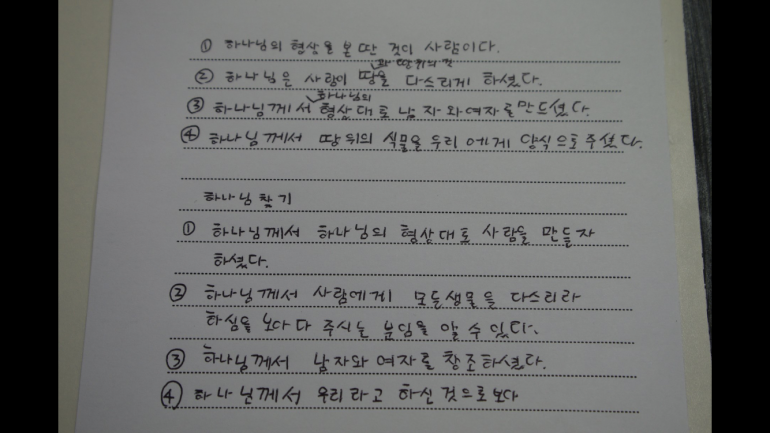 ① 하나님의 형상을 본 딴 것이 사람이다.
과 땅위의 것
② 하나님은 사람이 땅을 다스리게 하셨다.
하나님의
③ 하나님께서 형상대로 남자와여자를만드셨다.
④ 하나님께서 땅위의 식물을 우리에게 양식으로주셨다.
하나님 찾기
① 하나님께서 하나님의 형상대로 사람을 만들자
하셨다.
② 하나님께서 사람에게 모든생물을 다스리라
하심을 보아 다 주시는 분임을 알 수 있다.
③ 하나님께서 남자와 여자를 창조하셨다.
④ 하나님께서 우리라고 하신 것으로보아